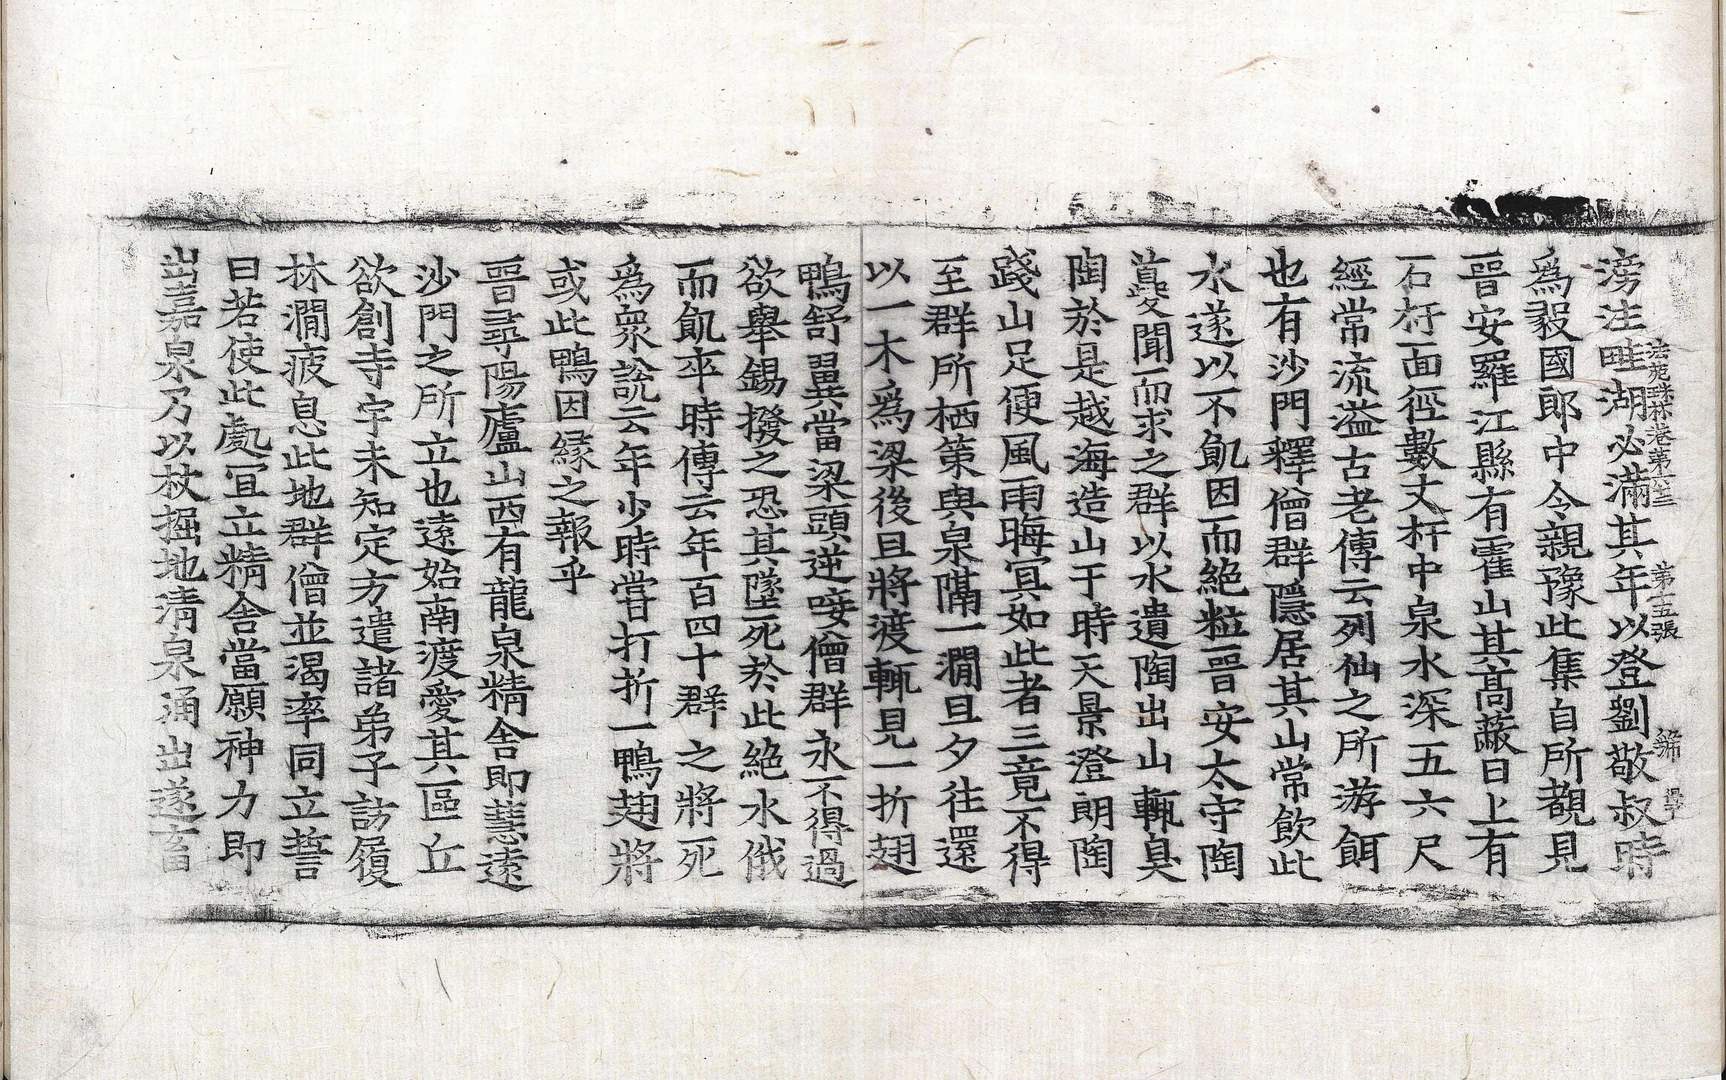 法苑珠林卷第六十三 第十五張
滂注畦湖必滿其年以登劉敬叔時
爲毅國郎中令親豫此集自所覩見
晉安羅江縣有霍山其高蔽日上有
石杅面徑數丈杅中泉水深五六尺
經常流溢古老傳云列仙之所游餌
也有沙門釋僧群隱居其山常飲此
水遂以不飢因而絕粒晉安太守陶
夔聞而求之群以水遺陶出山輒臭
陶於是越海造山于時天景澄朗陶
踐山足便風雨晦冥如此者三竟不得
至群所栖策與泉隔一澗旦夕往還
以一木爲梁後旦將渡輒見一折翅
鴨舒翼當梁頭逆唼僧群永不得過
欲舉錫撥之恐其墜死於此絕水俄
而飢卒時傳云年百四十群之將死
爲衆說云年少時嘗打折一鴨翅將
或此鴨因緣之報乎
晉尋陽廬山西有龍泉精舍即慧遠
沙門之所立也遠始南渡愛其區丘
欲創寺宇未知定方遣諸弟子訪履
林澗疲息此地群僧並渴率同立誓
曰若使此處宜立精舍當願神力即
出嘉泉乃以杖掘地清泉涌出遂畜